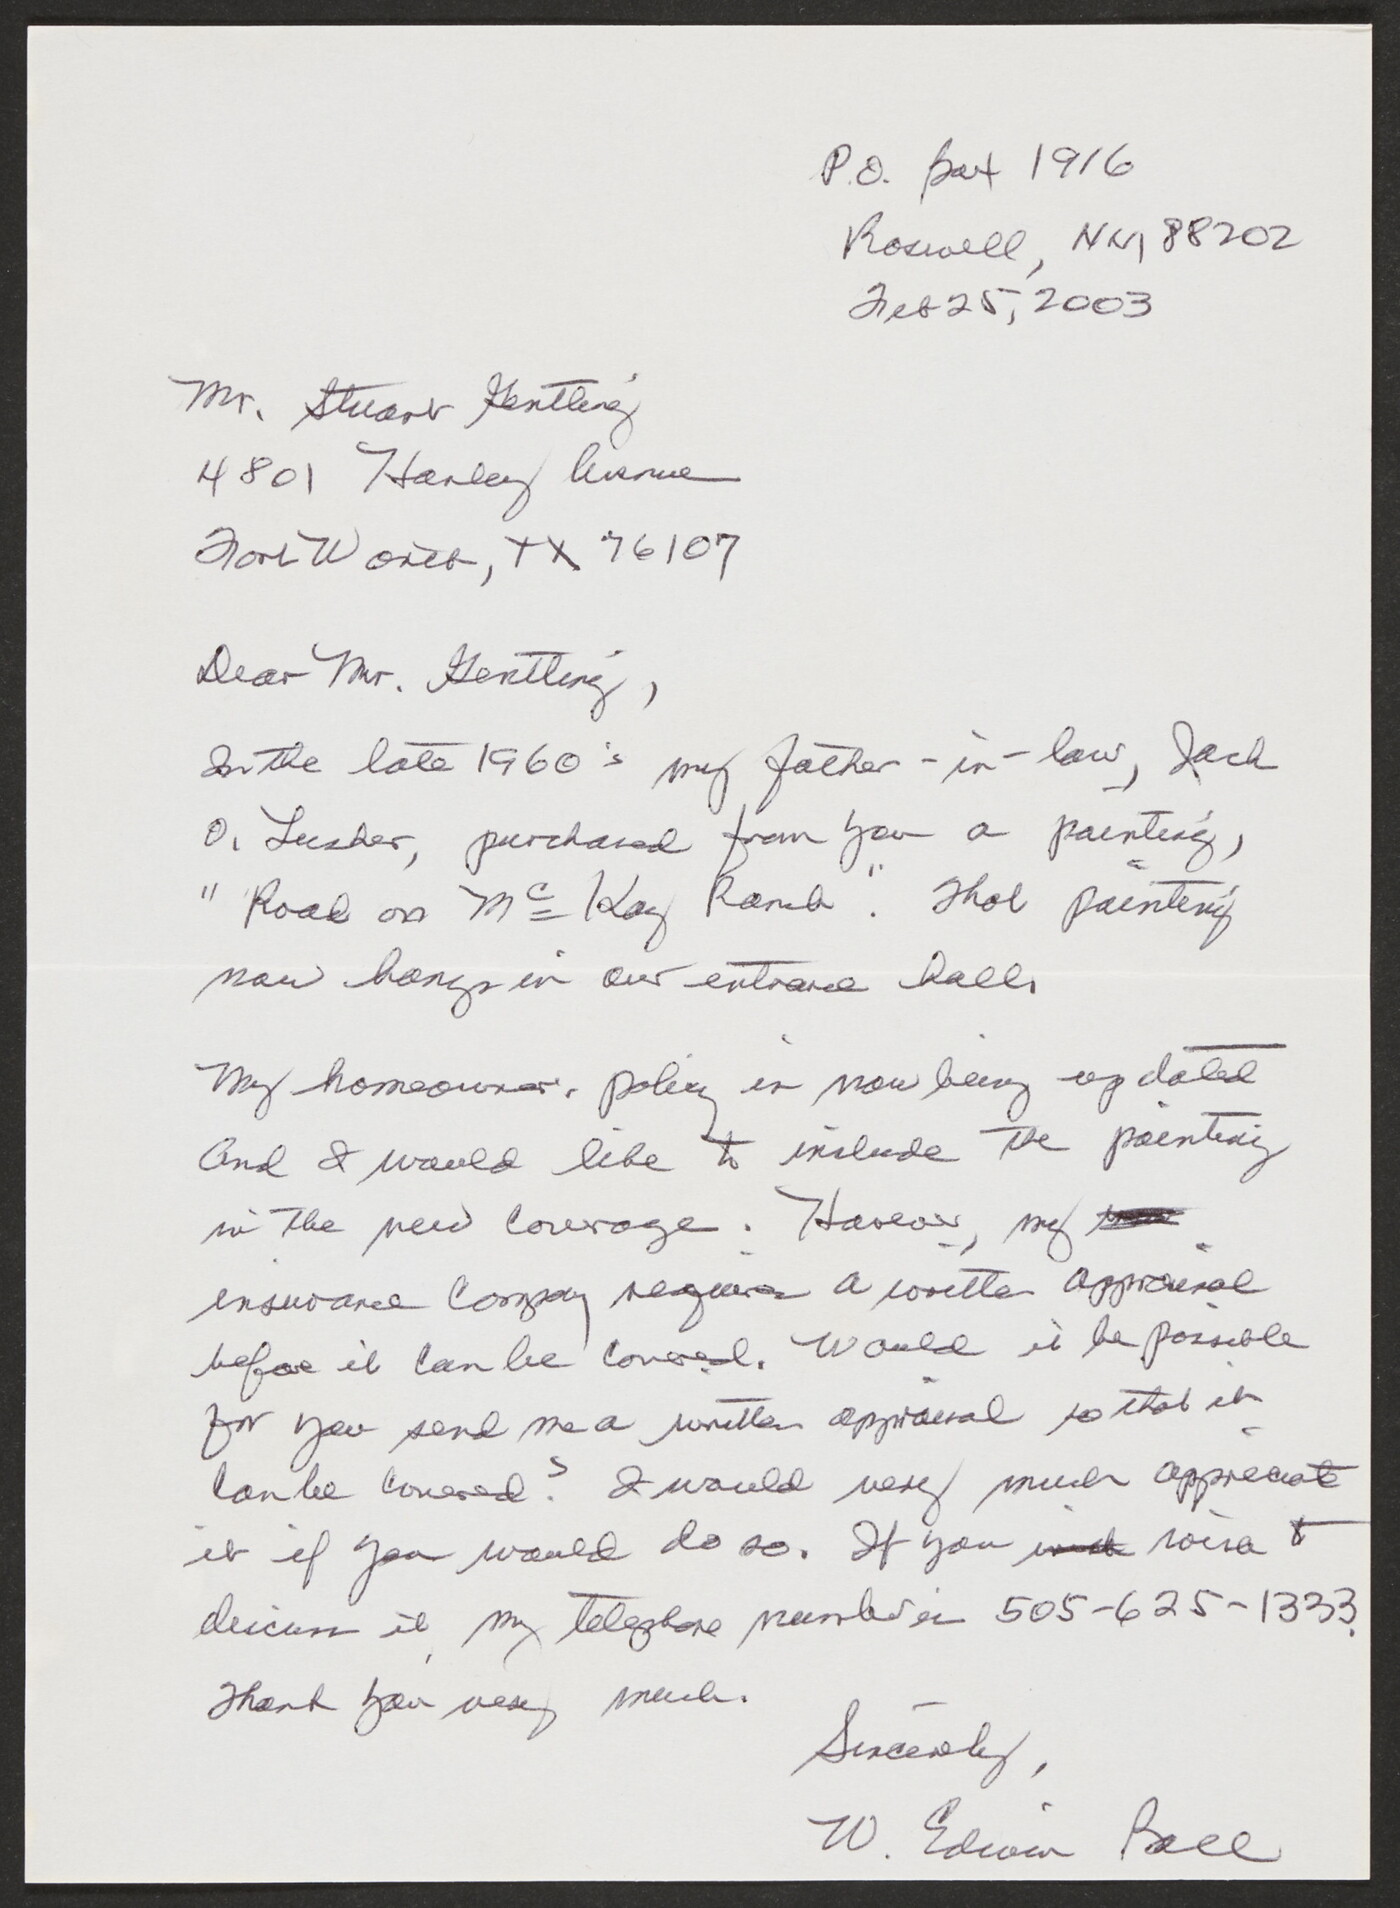 P.O. Box 1916
Roswell, NM, 88202
Feb 25, 2003
Mr. Stuart Gentling
4801 Harley Avenue
Fort Worth, TX 76107
Dear Mr. Gentling,
In the late 1960's my father-in-law, Jack
O. Lusher, purchased from you a painting,
"Road on McKay Ranch". That painting
now hangs in our entrance hall.
My homeowners policy is now being updated
and I would like to include the painting
in the new coverage. However, my
insurance company requires a written appraisal
before it can be covered. Would it be possible
for you send me a written appraisal so that it
can be covered? I would very much appreciate
it if you would do so. If you wish to
discuss it, my telephone number is 505-625-1333.
Thank you very much.
Sincerely,
W. Edwin Ball